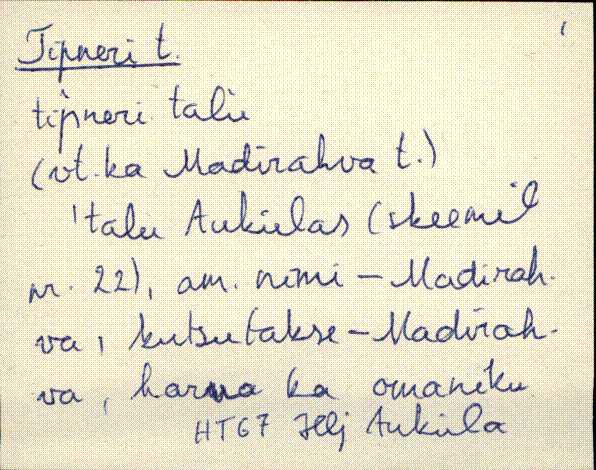 Tipneri t.
tipneri talu
(vt. ka Madirahva t.)
'talu Aukülas (skeemil
nr. 22), am. nimi - Madirah-
va, kutsutakse - Madirah-
va, harva ka omaniku
HT67 Aukula